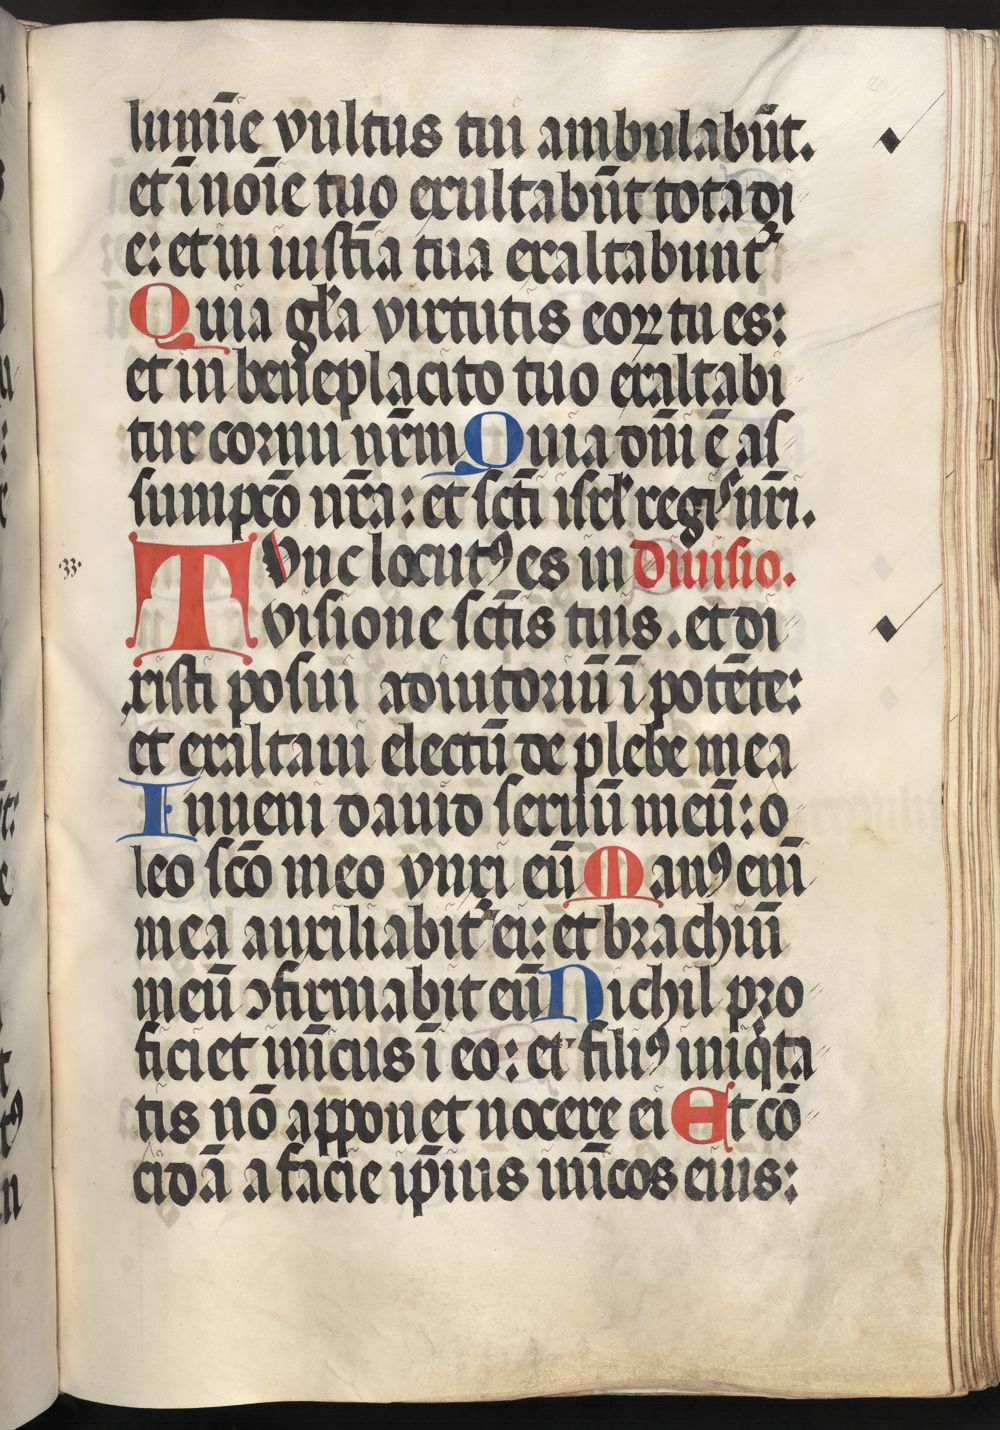 lumīe vultus tui ambulabūt.
et ī noīe tuo exultabūt tota di
e: et in iustīa tua exaltabunt᷑
Quia gl̄a virtutis eoꝝ tu es:
et in beneplacito tuo exaltabi
tur cornu nr̄m Quia dn̄i ē as
sumpcō nr̄a: et sc̄ti isrl̄ regis nr̄i.
·33·
Tunc locutꝰ es in Diuisio.
visione sc̄tis tuis. et di
xisti posui adiutoriū ī potēte:
et exaltaui electū de plebe mea
Inueni dauid seruū meū: o
leo sc̄o meo vnxi eū Manꝰ enī
mea auxiliabit᷑ ei: et brachiū
meū ↄfirmabit eū Nichil pro
ficiet inīcus ī eo: et filiꝰ iniqͥta
tis nō apponet nocere ei Et cō
cidā a facie ip̄ius inīcos eius: